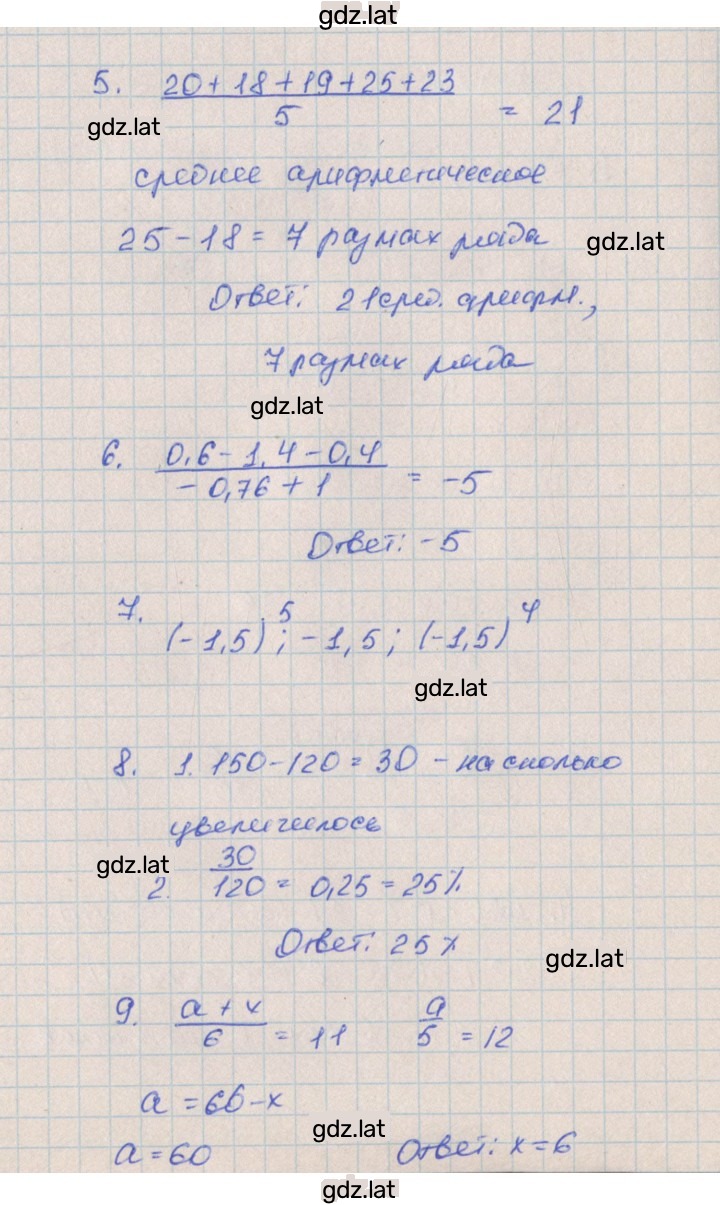 gdz.lat
5. 20+18+19+25+23
gdz.lat 5 = 21
среднее арифметическое
25-18=7 размах ряда gdz.lat
Ответ: 21 сред. арифм.,
7 размах ряда
gdz.lat
6. 0,6-1,4-0,4
-0,76+1 = -5
Ответ: -5
7. (-1,5)⁵; -1,5; (-1,5)⁴
gdz.lat
8. 1. 150-120=30 - на сколько
увеличилось
gdz.lat 30
2. 120 = 0,25 = 25%
Ответ: 25%
gdz.lat
9. a+x a
6 = 11 5 = 12
a = 66-x
gdz.lat
a=60 Ответ: x=6
gdz.lat